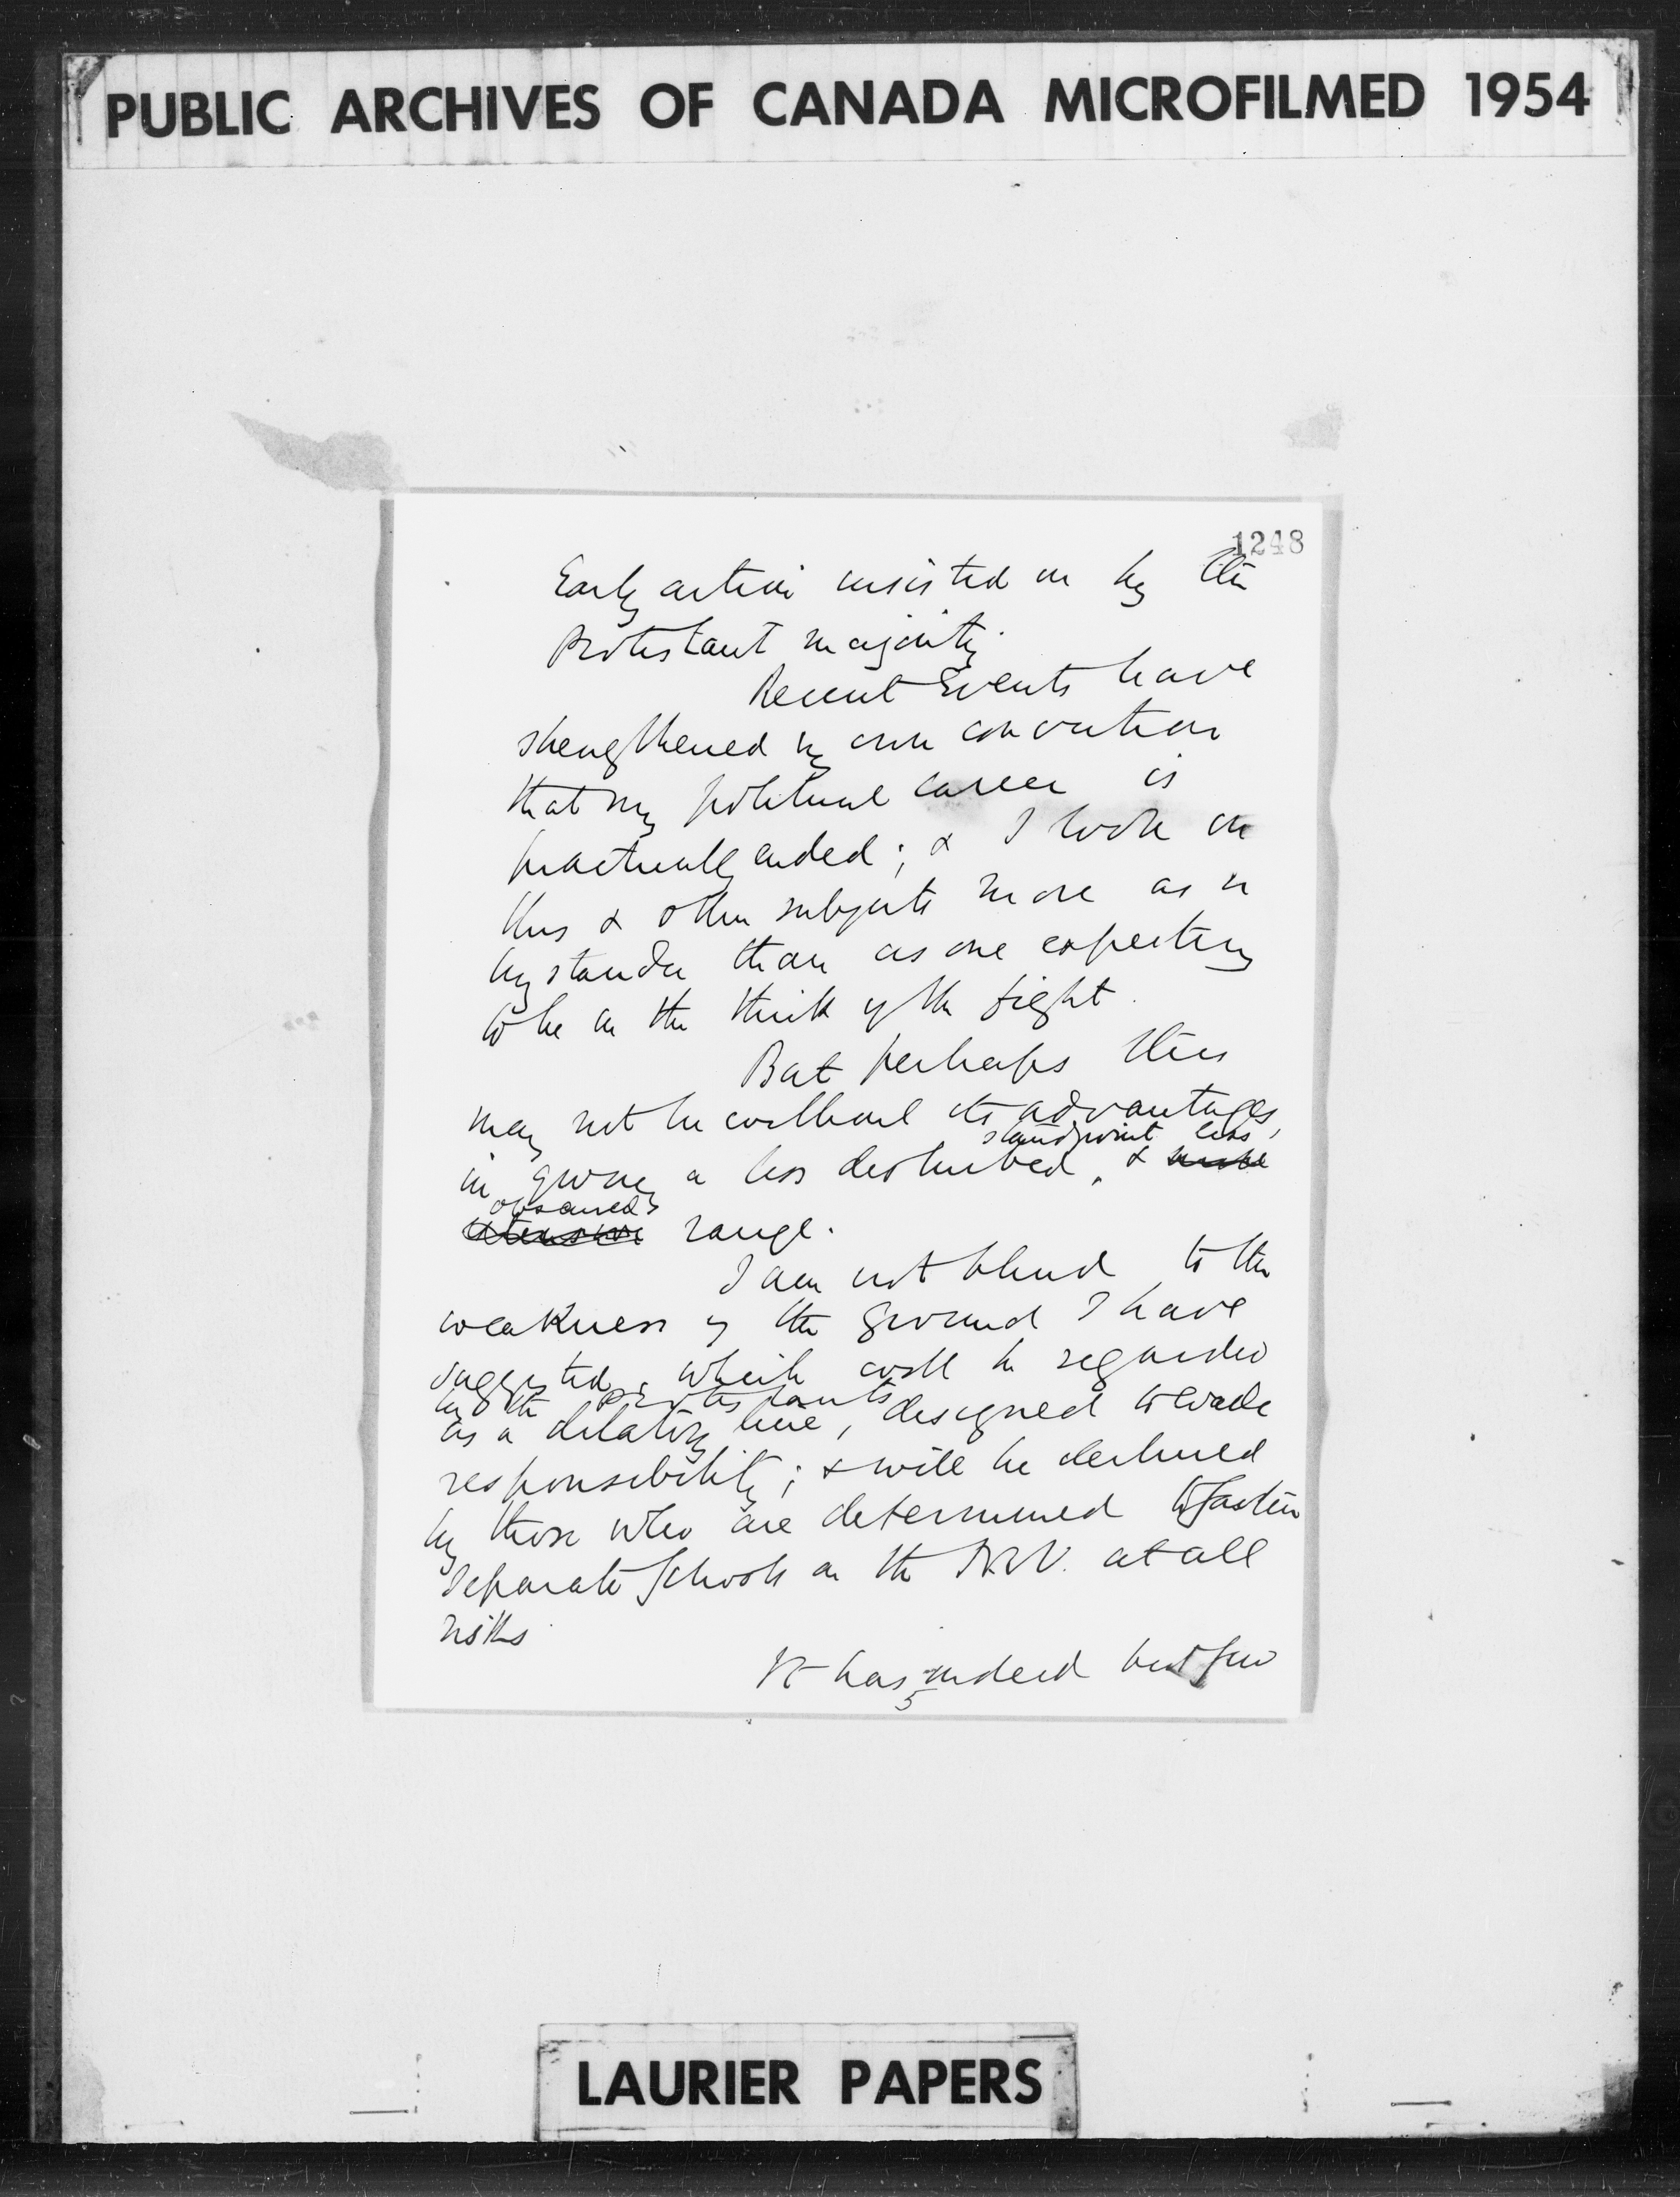 PUBLIC ARCHIVES OF CANADA MICROFILMED 1954
1248
Early action insisted on by the
Protestant majority.
Recent Events have
strengthened my own conviction
that my political career is
practically ended; & I look on
this & other subjects more as a
bystander than as one expecting
to be in the thick of the fight.
But perhaps this
may not be without its advantages,
standpoint less
in giving a less disturbed, & more
obscured
extensive range.
I am not blind to the
weakness of the ground I have
suggested, which will be regarded
by the Protestants
as a dilatory line, designed to evade
responsibility; & will be declined
by those who are determined to fasten
Separate Schools on the N.W. at all
risks
It has indeed but few
5
LAURIER PAPERS